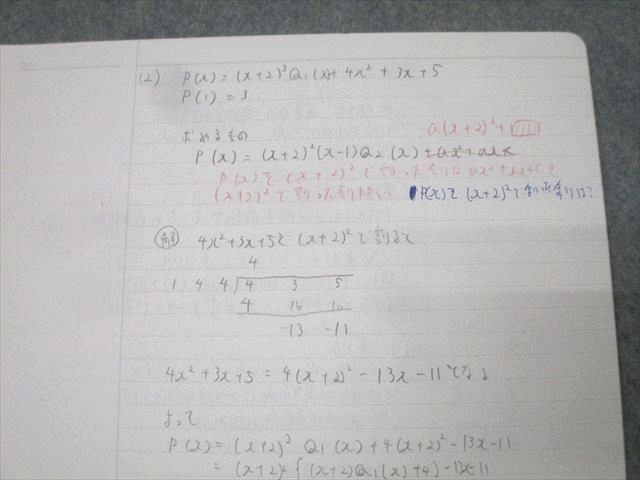 (2) P(x) = (x+2)³Q₁(x) + 4x² + 3x + 5
P(1) = 3
求めるもの
a(x+2)²+
P(x) = (x+2)²(x-1)Q₂(x) + ax²+bx+c
P(x)を(x+2)²で割った余りは ax²+bx+cを
(x+2)²で割った余りに P(x)を(x+2)²で割った余りは?
解 4x²+3x+5を(x+2)²で割ると
4
1 4 4 4 3 5
4 16 16
-13 -11
4x²+3x+5 = 4(x+2)² - 13x - 11となる
よって
P(x) = (x+2)³ Q₁(x) + 4(x+2)² - 13x - 11
= (x+2)² {(x+2)Q₁(x)+4} - 13x - 11